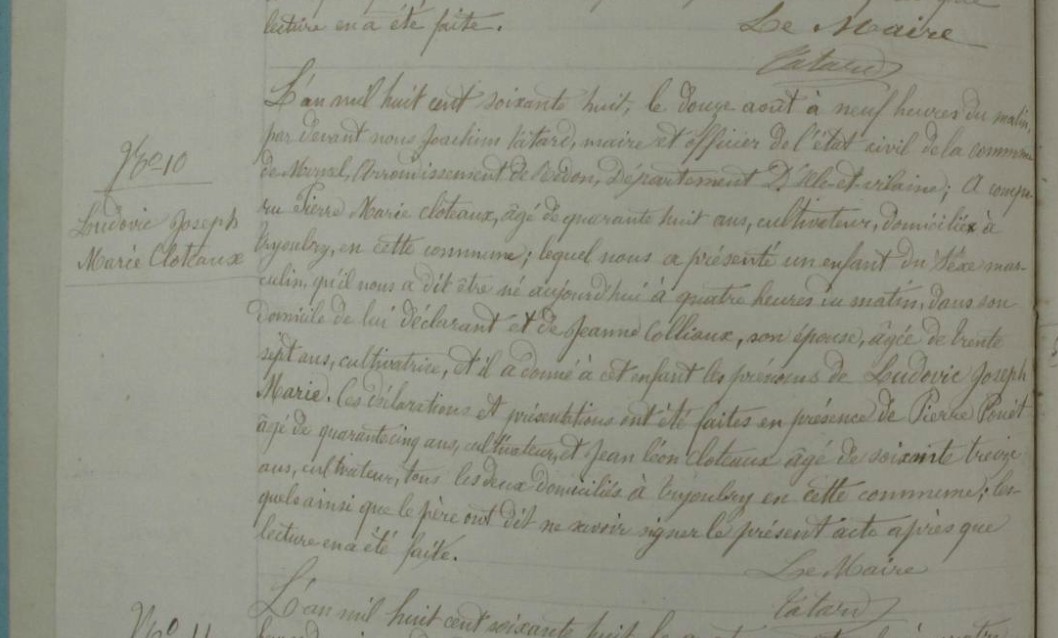 lecture en a été faite.
Le Maire
Tatard
L'an mil huit cent soixante huit, le douze aout à neuf heures du matin,
par devant nous Joachim Tatard, maire et officier de l'état civil de la commune
de Mernel, Arrondissement de Redon, Département D'Ille-et-vilaine; A compa-
ru Pierre Marie cloteaux, âgé de quarante huit ans, cultivateur, domicilié à
en cette commune; lequel nous a présenté un enfant du séxe mas-
culin, qu'il nous a dit être né aujourd'hui à quatre heures du matin, dans son
domicile de lui déclarant et de Jeanne Colliaux, son épouse, âgée de trente
sept ans, cultivatrice, et il a donné à cet enfant les prénoms de Ludovic Joseph
Marie. Ces déclarations et présentations ont été faites en présence de Pierre
âgé de quarante cinq ans, cultivateur, et Jean léon Cloteaux âgé de soixante treize
ans, cultivateur, tous les deux domiciliés à en cette commune; les-
quels ainsi que le père ont dit ne savoir signer le présent acte après que
lecture en a été faite.
Le Maire
Tatard
No 10
Ludovic Joseph
Marie Cloteaux
No 11
L'an mil huit cent soixante huit, le